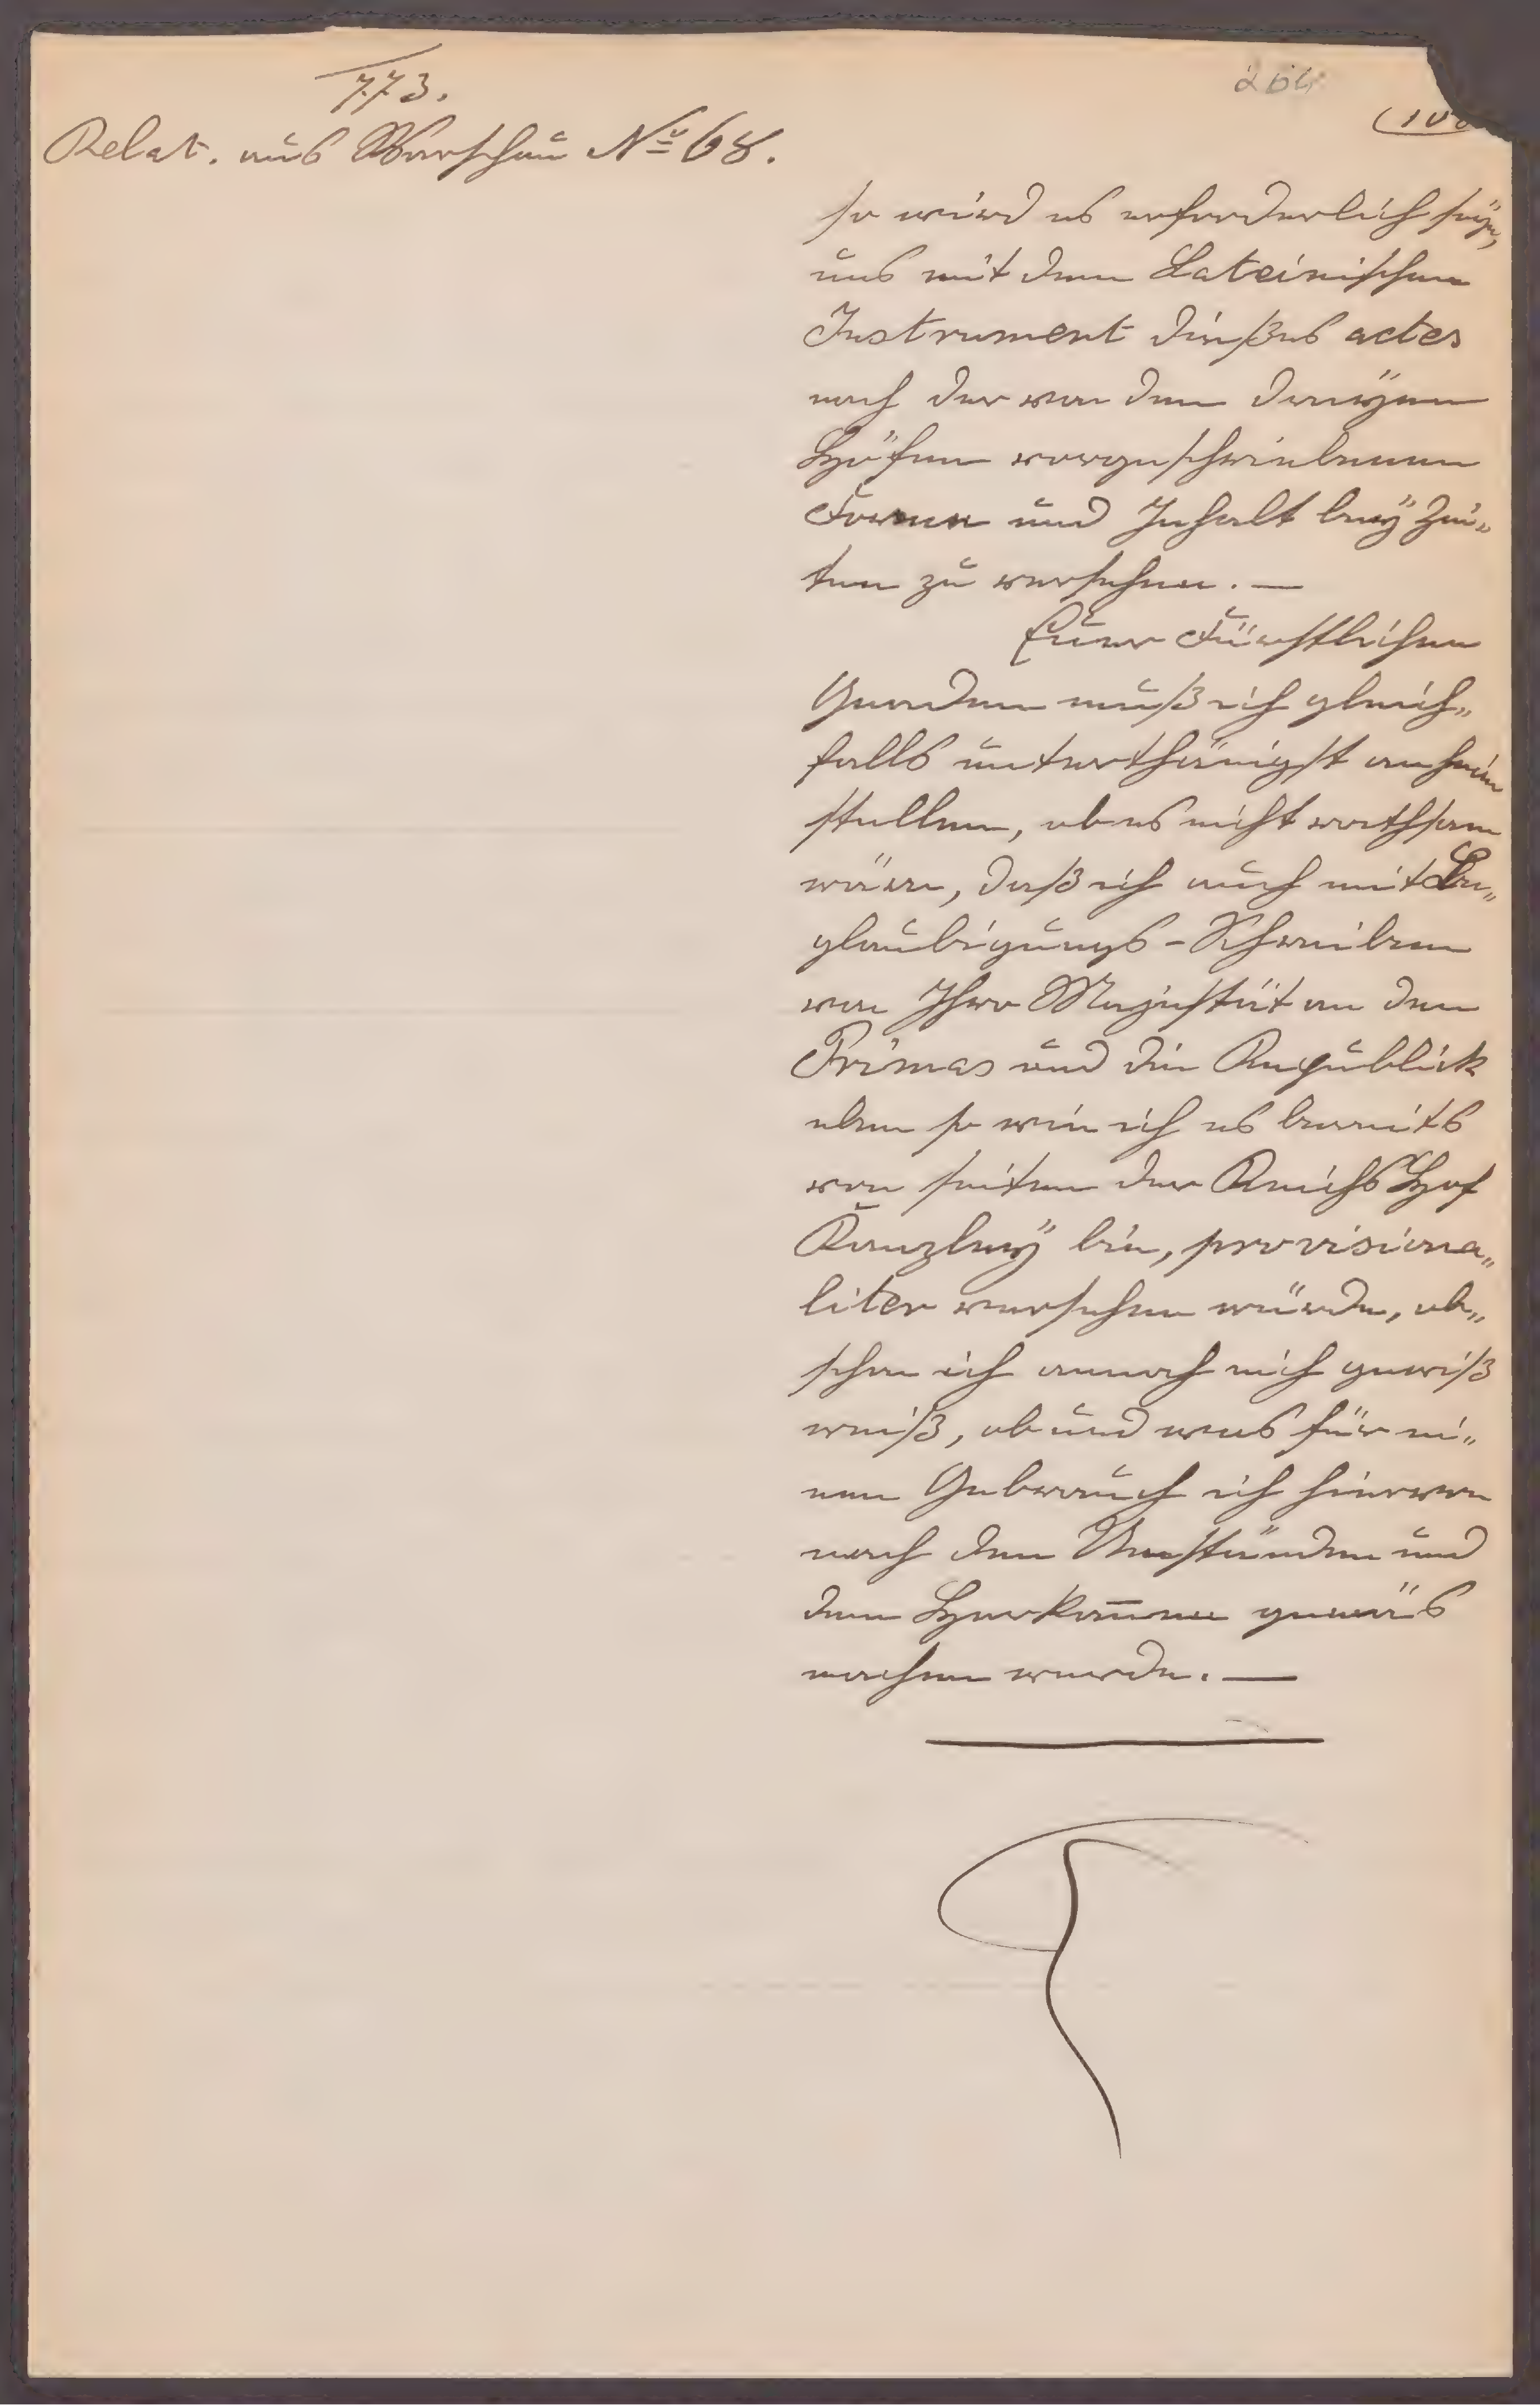 773.
Relat. aus Warschau Nº 68.
so wird es erforderlich seÿn,
uns mit dem Lateinischen
Instrument dießes actes
nach der von den dreÿen
Höfen vorgeschriebenen
Form und Inhalt beÿ Zei„
ten zu versehen. —
Euer Fürstlichen
Gnaden muß ich gleich„
falls unterthänigst anheim
stellen, ob es nicht rathsam
wäre, daß ich auch mit Be„
glaubigungs-Schreiben
von Ihro Majestät an den
Primas und die Republick
eben so wie ich es bereits
von seiten der Reichs Hof
Kanzleÿ bin, provisiona„
liter versehen würde, ob„
schon ich annoch nich gewiß
weiß, ob und was für ei„
nen Gebrauch ich hievon
nach den Umständen und
dem Herkom̅en gemäs
machen werde. —